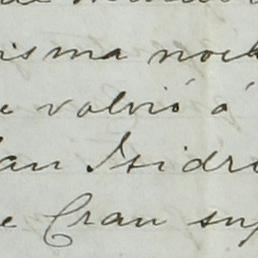 isma noch
e volvió á
an Isidro
e Cran sup